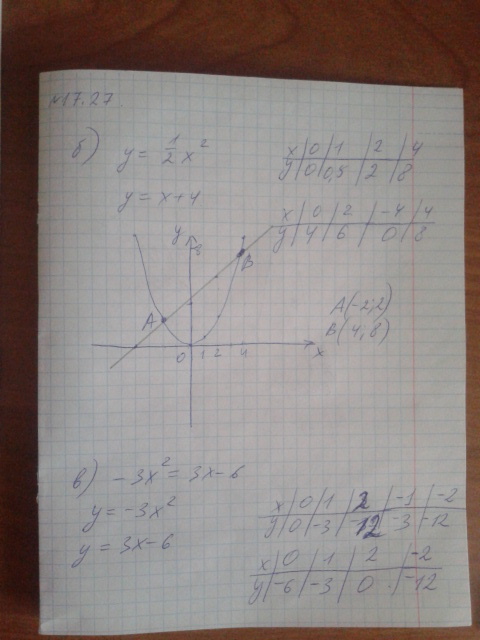 №17.27
б) y = 1/2 x²
x | 0 | 1 | 2 | 4
y | 0 | 0,5 | 2 | 8
y = x+4
x | 0 | 2 | -4 | 4
y | 4 | 6 | 0 | 8
y 8
B
A
0 1 2 4 x
A(-2;2)
B(4,8)
в) -3x² = 3x-6
y = -3x²
x | 0 | 1 | 2 | -1 | -2
y | 0 | -3 | -12 | -3 | -12
y = 3x-6
x | 0 | 1 | 2 | -2
y | -6 | -3 | 0 | -12